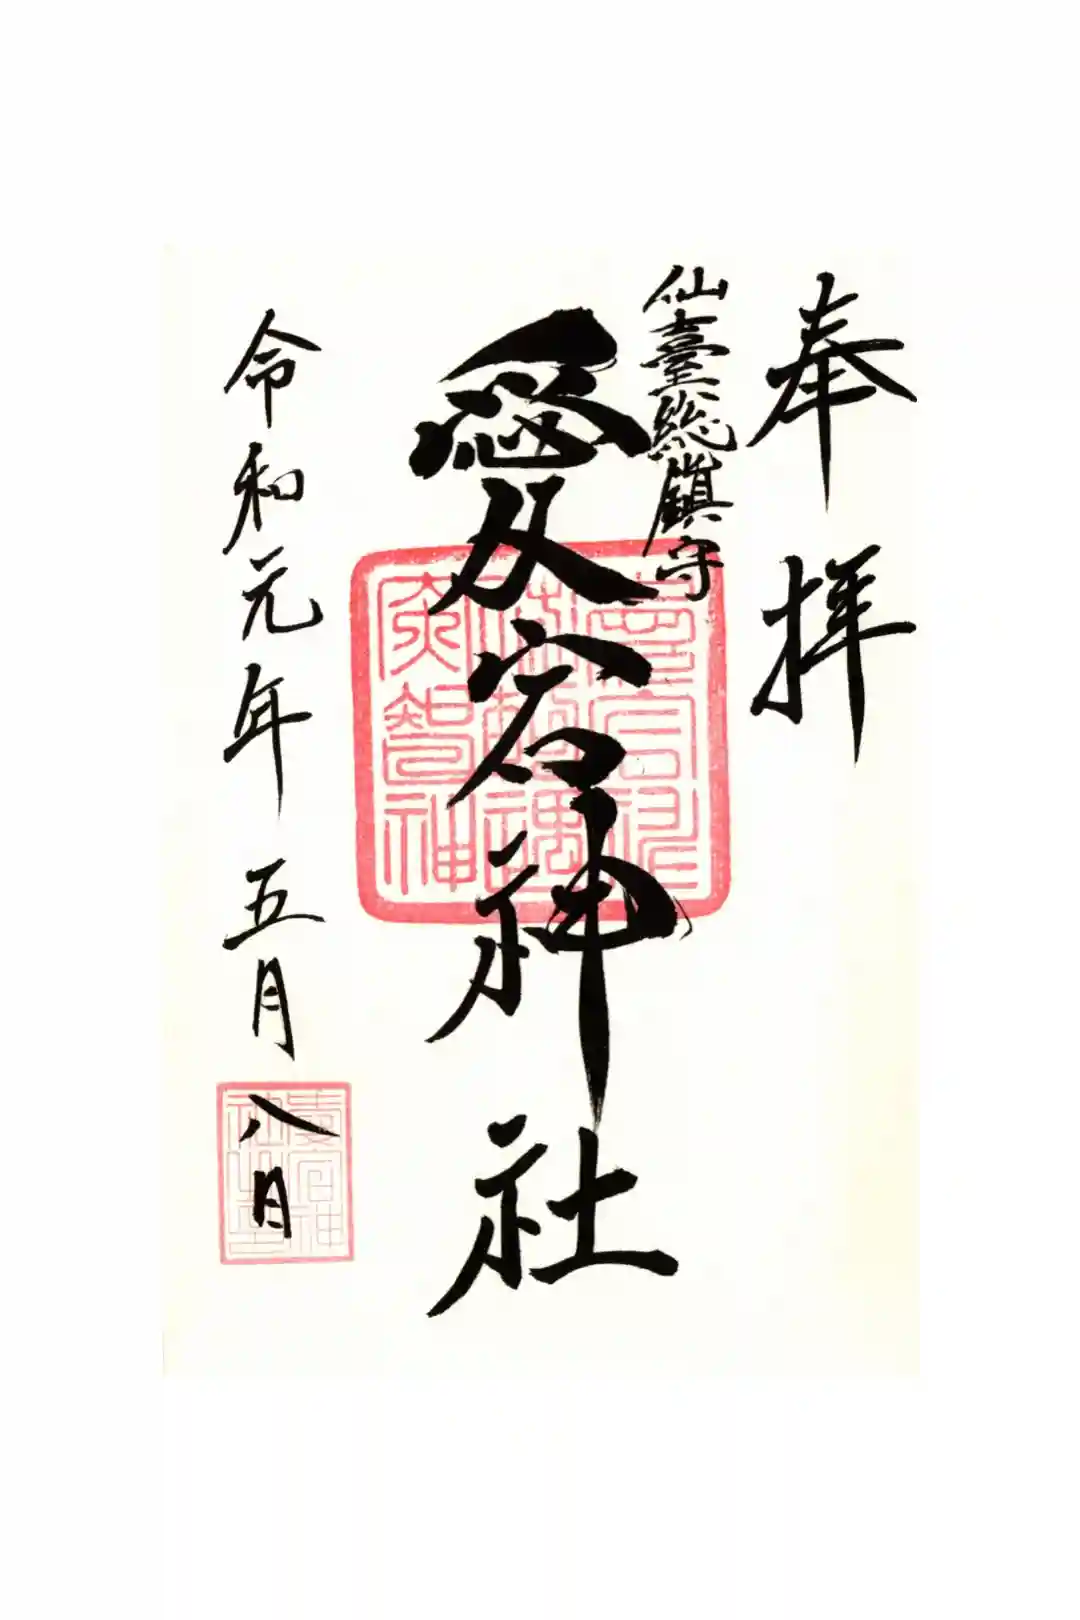 奉拝
仙臺総鎮守
愛宕神社
令和元年五月八日